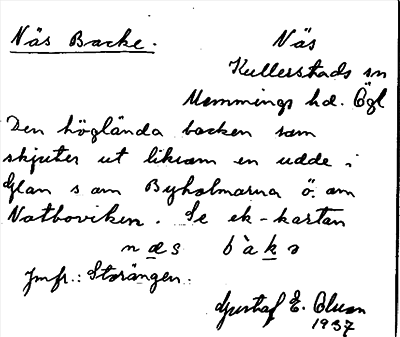 Näs Backe. Näs
Kullerstads sn
Memmings hd. Ögl
Den höglända backen som
skjuter ut liksom en udde i
Glan s om Byholmarna ö. om
Notboviken. Se ek-kartan
næs bàkə
Jmfr.: Storängen.
Gustaf E. Olson
1937